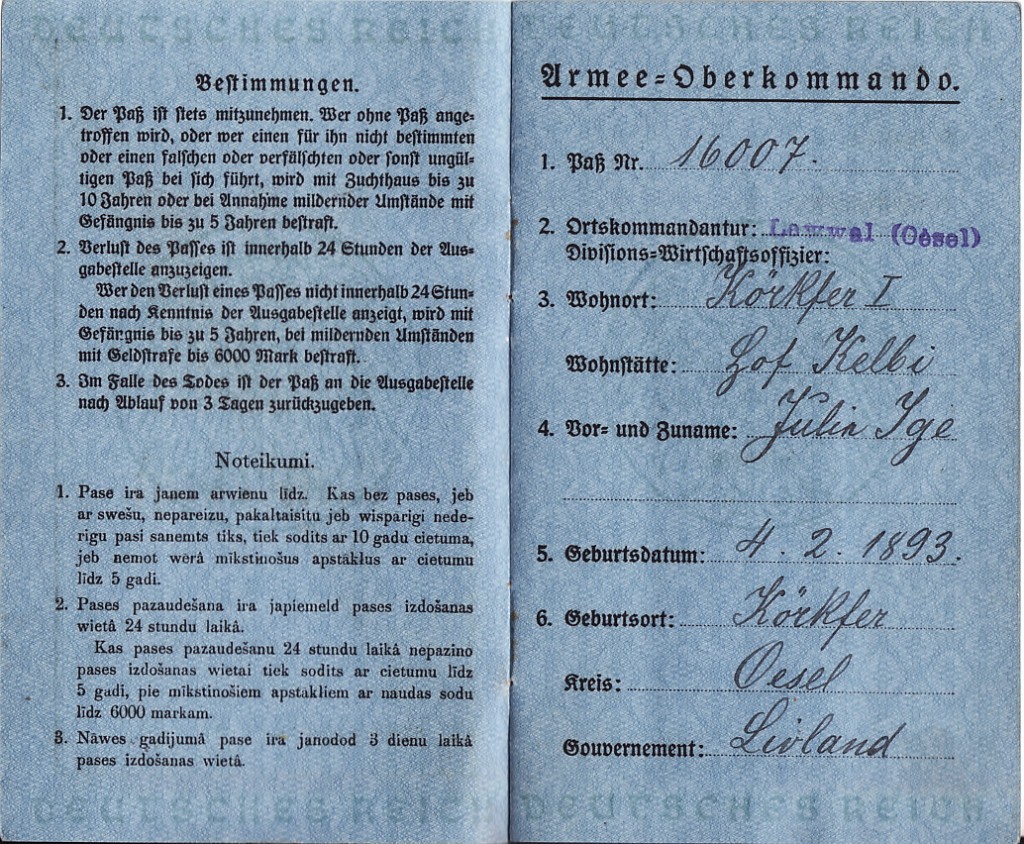 DEUTSCHES REICH
Bestimmungen.
1. Der Paß ist stets mitzunehmen. Wer ohne Paß ange=
troffen wird, oder wer einen für ihn nicht bestimmten
oder einen falschen oder verfälschten oder sonst ungül=
tigen Paß bei sich führt, wird mit Zuchthaus bis zu
10 Jahren oder bei Annahme mildernder Umstände mit
Gefängnis bis zu 5 Jahren bestraft.
2. Verlust des Passes ist innerhalb 24 Stunden der Aus=
gabestelle anzuzeigen.
Wer den Verlust eines Passes nicht innerhalb 24 Stun=
den nach Kenntnis der Ausgabestelle anzeigt, wird mit
Gefängnis bis zu 5 Jahren, bei mildernden Umständen
mit Geldstrafe bis 6000 Mark bestraft.
3. Im Falle des Todes ist der Paß an die Ausgabestelle
nach Ablauf von 3 Tagen zurückzugeben.
Noteikumi.
1. Pase ira janem arwienu līdz. Kas bez pases, jeb
ar swešu, nepareizu, pakaltaisitu jeb wisparigi nede-
rigu pasi sanemts tiks, tiek sodits ar 10 gadu cietuma,
jeb nemot werâ mikstinošus apstâklus ar cietumu
līdz 5 gadi.
2. Pases pazaudešana ira japiemeld pases izdošanas
wietâ 24 stundu laikâ.
Kas pases pazaudešanu 24 stundu laikâ nepazino
pases izdošanas wietai tiek sodits ar cietumu līdz
5 gadi, pie mikstinošiem apstakliem ar naudas sodu
līdz 6000 markam.
3. Nâwes gadijumâ pase ira janodod 3 dienu laikâ
pases izdošanas wietâ.
DEUTSCHES REICH
DEUTSCHES REICH
Armee=Oberkommando.
1. Paß Nr. 16007.
2. Ortskommandantur: (Oesel)
Divisions=Wirtschaftsoffizier:
3. Wohnort: Körkfer I
Wohnstätte: Hof Kelbi
4. Vor= und Zuname: Julia Ige
5. Geburtsdatum: 4. 2. 1893.
6. Geburtsort: Körkfer
Kreis: Oesel
Gouvernement: Livland
DEUTSCHES REICH